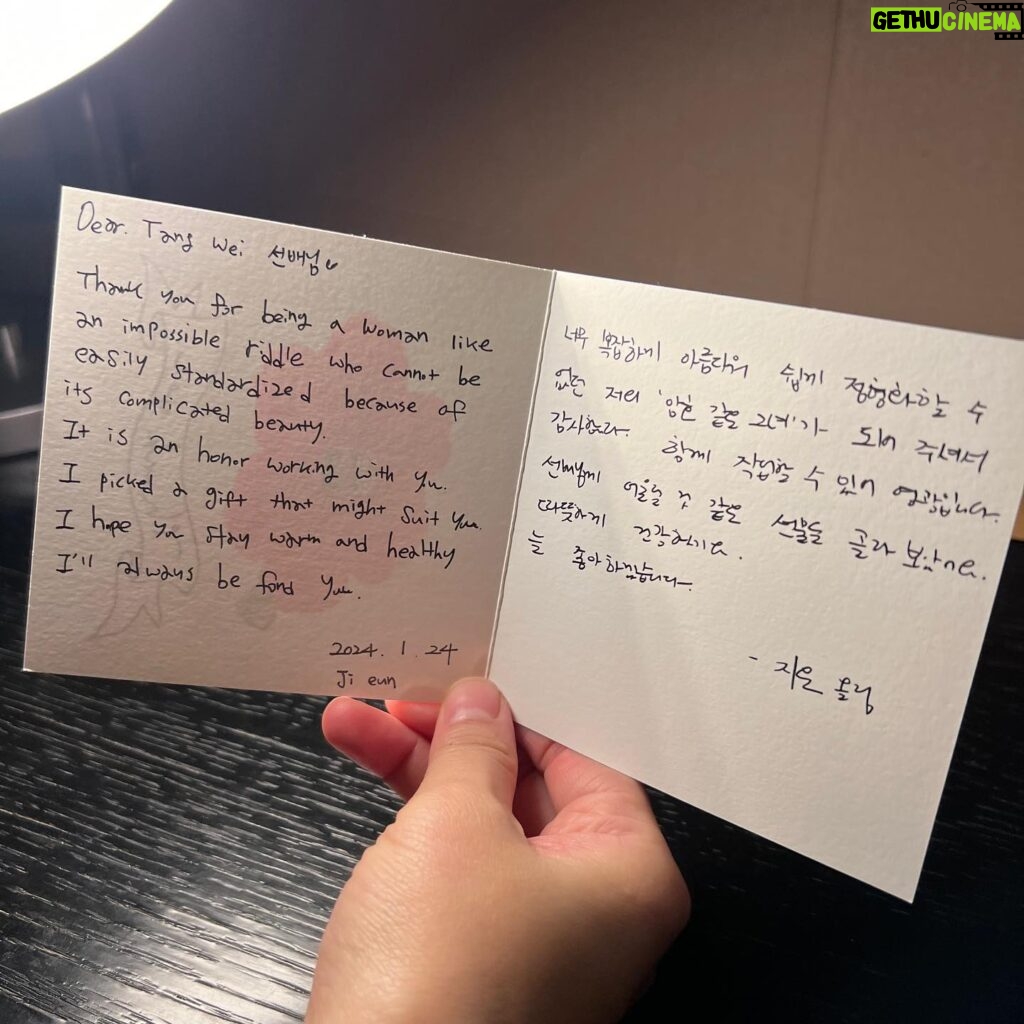 GETHUCINEMA
Dear. Tang Wei 선배님
Thank you for being a woman like
an impossible riddle who cannot be
easily standardized because of
its complicated beauty.
It is an honor working with you.
I picked a gift that might suit you.
I hope you stay warm and healthy
I'll always be fond you.
2024. 1. 24
Ji eun
너무 복잡하게 아름다워 쉽게 정형화할 수
없던 저의 '암호 같은 그녀'가 되어 주셔서
감사해요. 함께 작업할 수 있어 영광입니다.
선배님께 어울릴 것 같은 선물을 골라 보았어요.
따뜻하게 건강하세요.
늘 좋아하겠습니다.
- 지은 올림